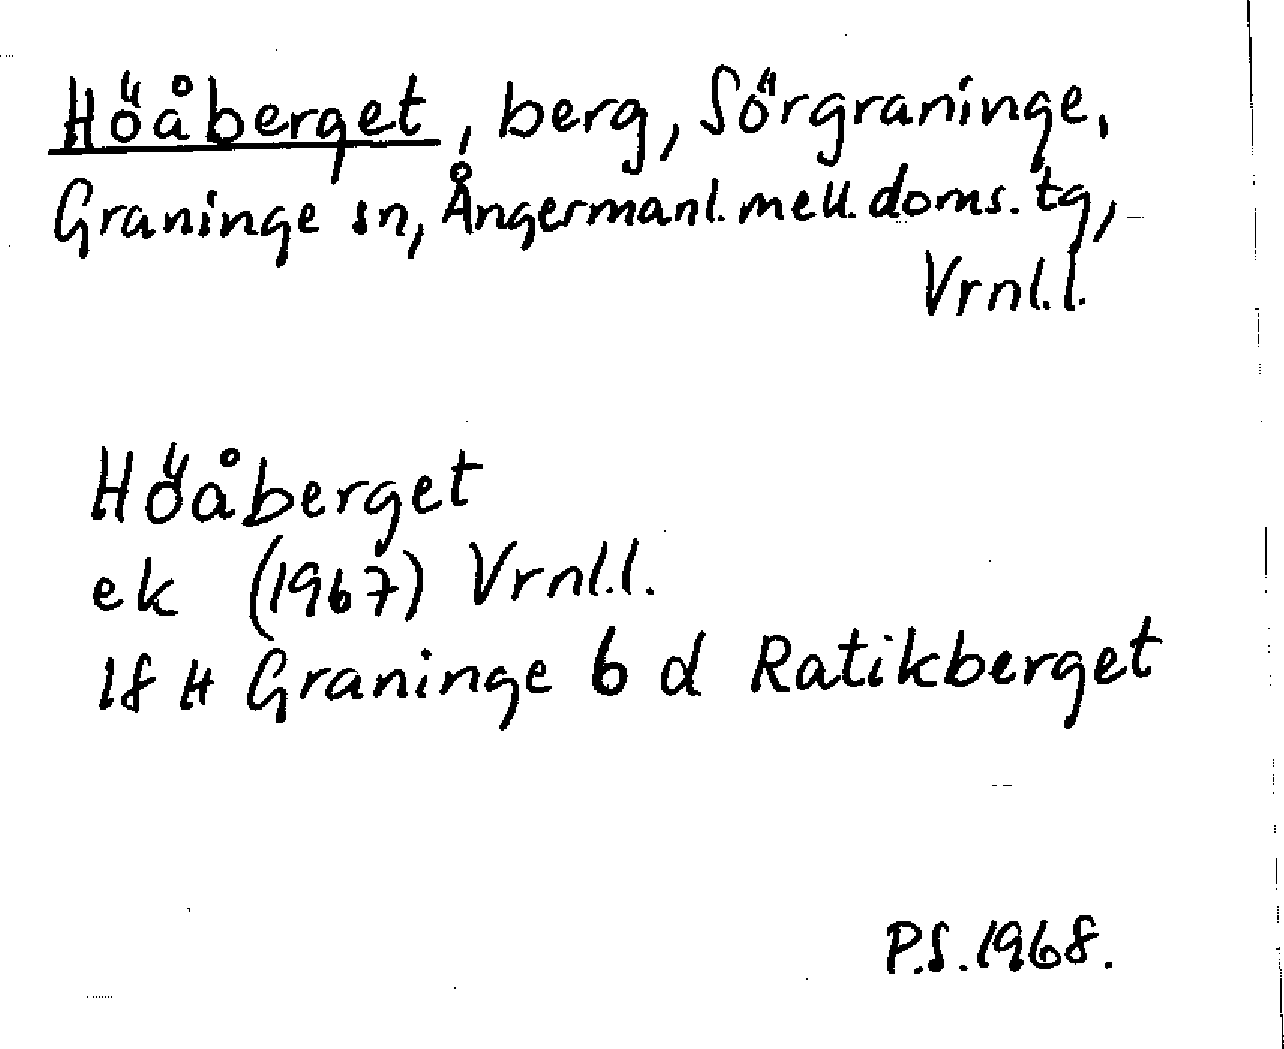 Höåberget, berg, Sörgraninge,
Graninge sn, Ångermanl. mell. doms. tg,
Vrnl. l.
Höåberget
ek (1967) Vrnl. l.
18 H Graninge 6 d Ratikberget
P.S. 1968.